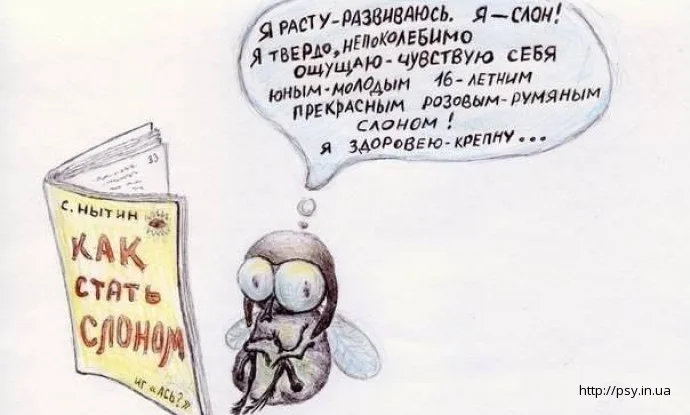 Я РАСТУ-РАЗВИВАЮСЬ. Я—СЛОН!
Я ТВЕРДО, НЕПОКОЛЕБИМО
ОЩУЩАЮ-ЧУВСТВУЮ СЕБЯ
ЮНЫМ-МОЛОДЫМ 16-ЛЕТНИМ
ПРЕКРАСНЫМ РОЗОВЫМ-РУМЯНЫМ
СЛОНОМ!
Я ЗДОРОВЕЮ-КРЕПНУ...
33
С. НЫТИН
КАК
СТАТЬ
СЛОНОМ
ИГ "АСЬ?"
http://psy.in.ua